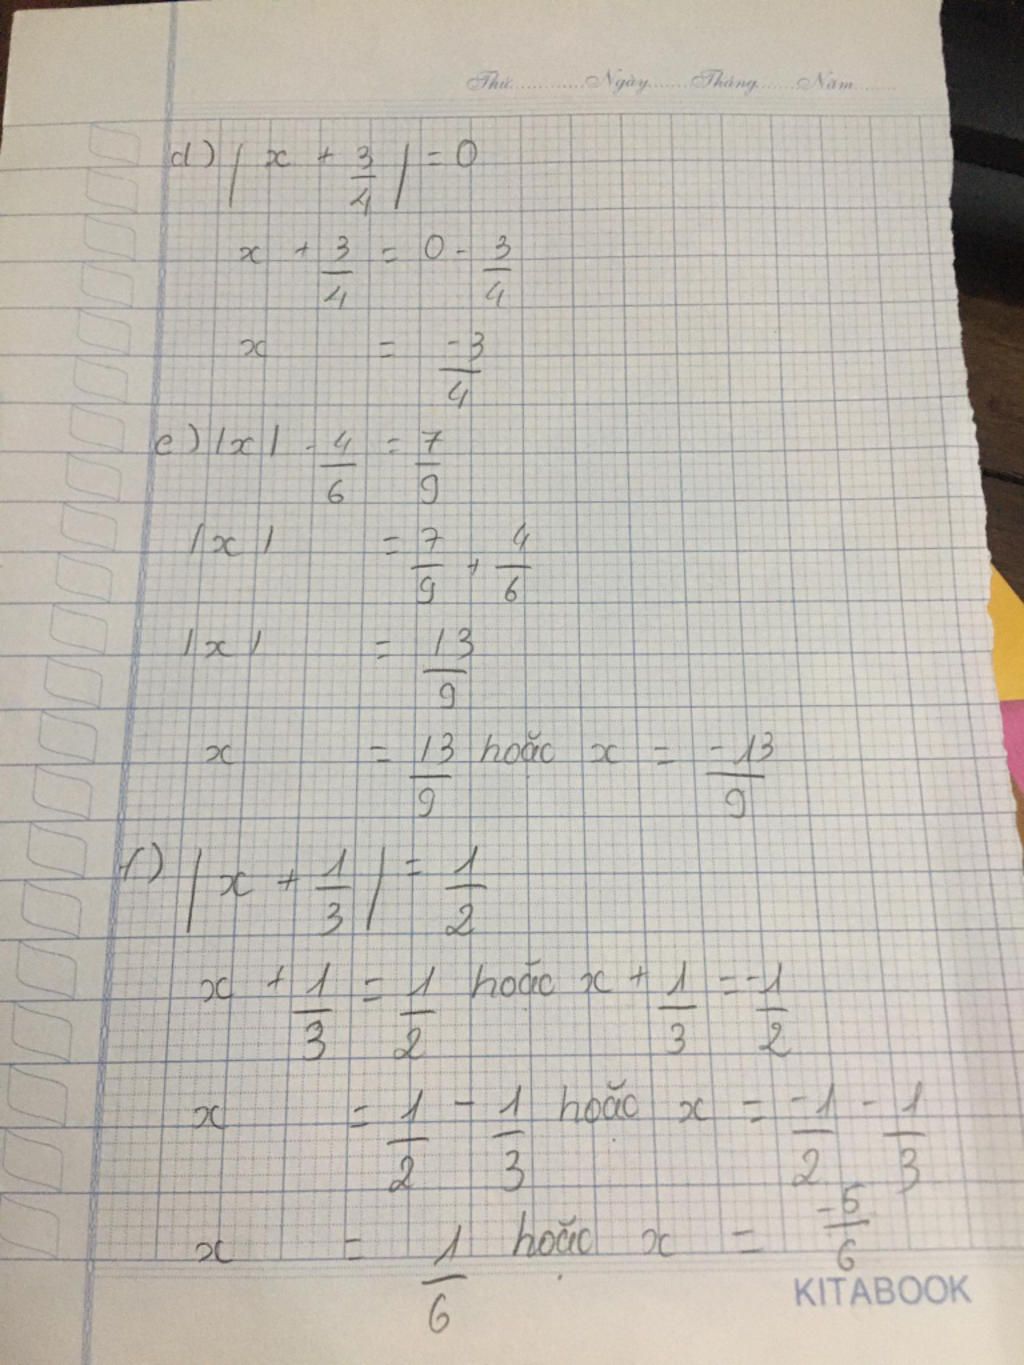 Thứ............Ngày.......Tháng.......Năm.......
d) |x + 3/4| = 0
x + 3/4 = 0 - 3/4
x = -3/4
e) |x| - 4/6 = 7/9
|x| = 7/9 + 4/6
|x| = 13/9
x = 13/9 hoặc x = -13/9
f) |x + 1/3| = 1/2
x + 1/3 = 1/2 hoặc x + 1/3 = -1/2
x = 1/2 - 1/3 hoặc x = -1/2 - 1/3
x = 1/6 hoặc x = -5/6
KITABOOK